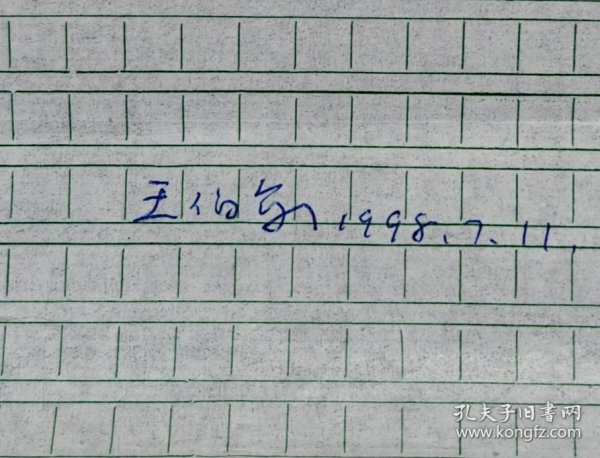 王伯敏 1998.7.11.
孔夫子旧書网
www.kongfz.com